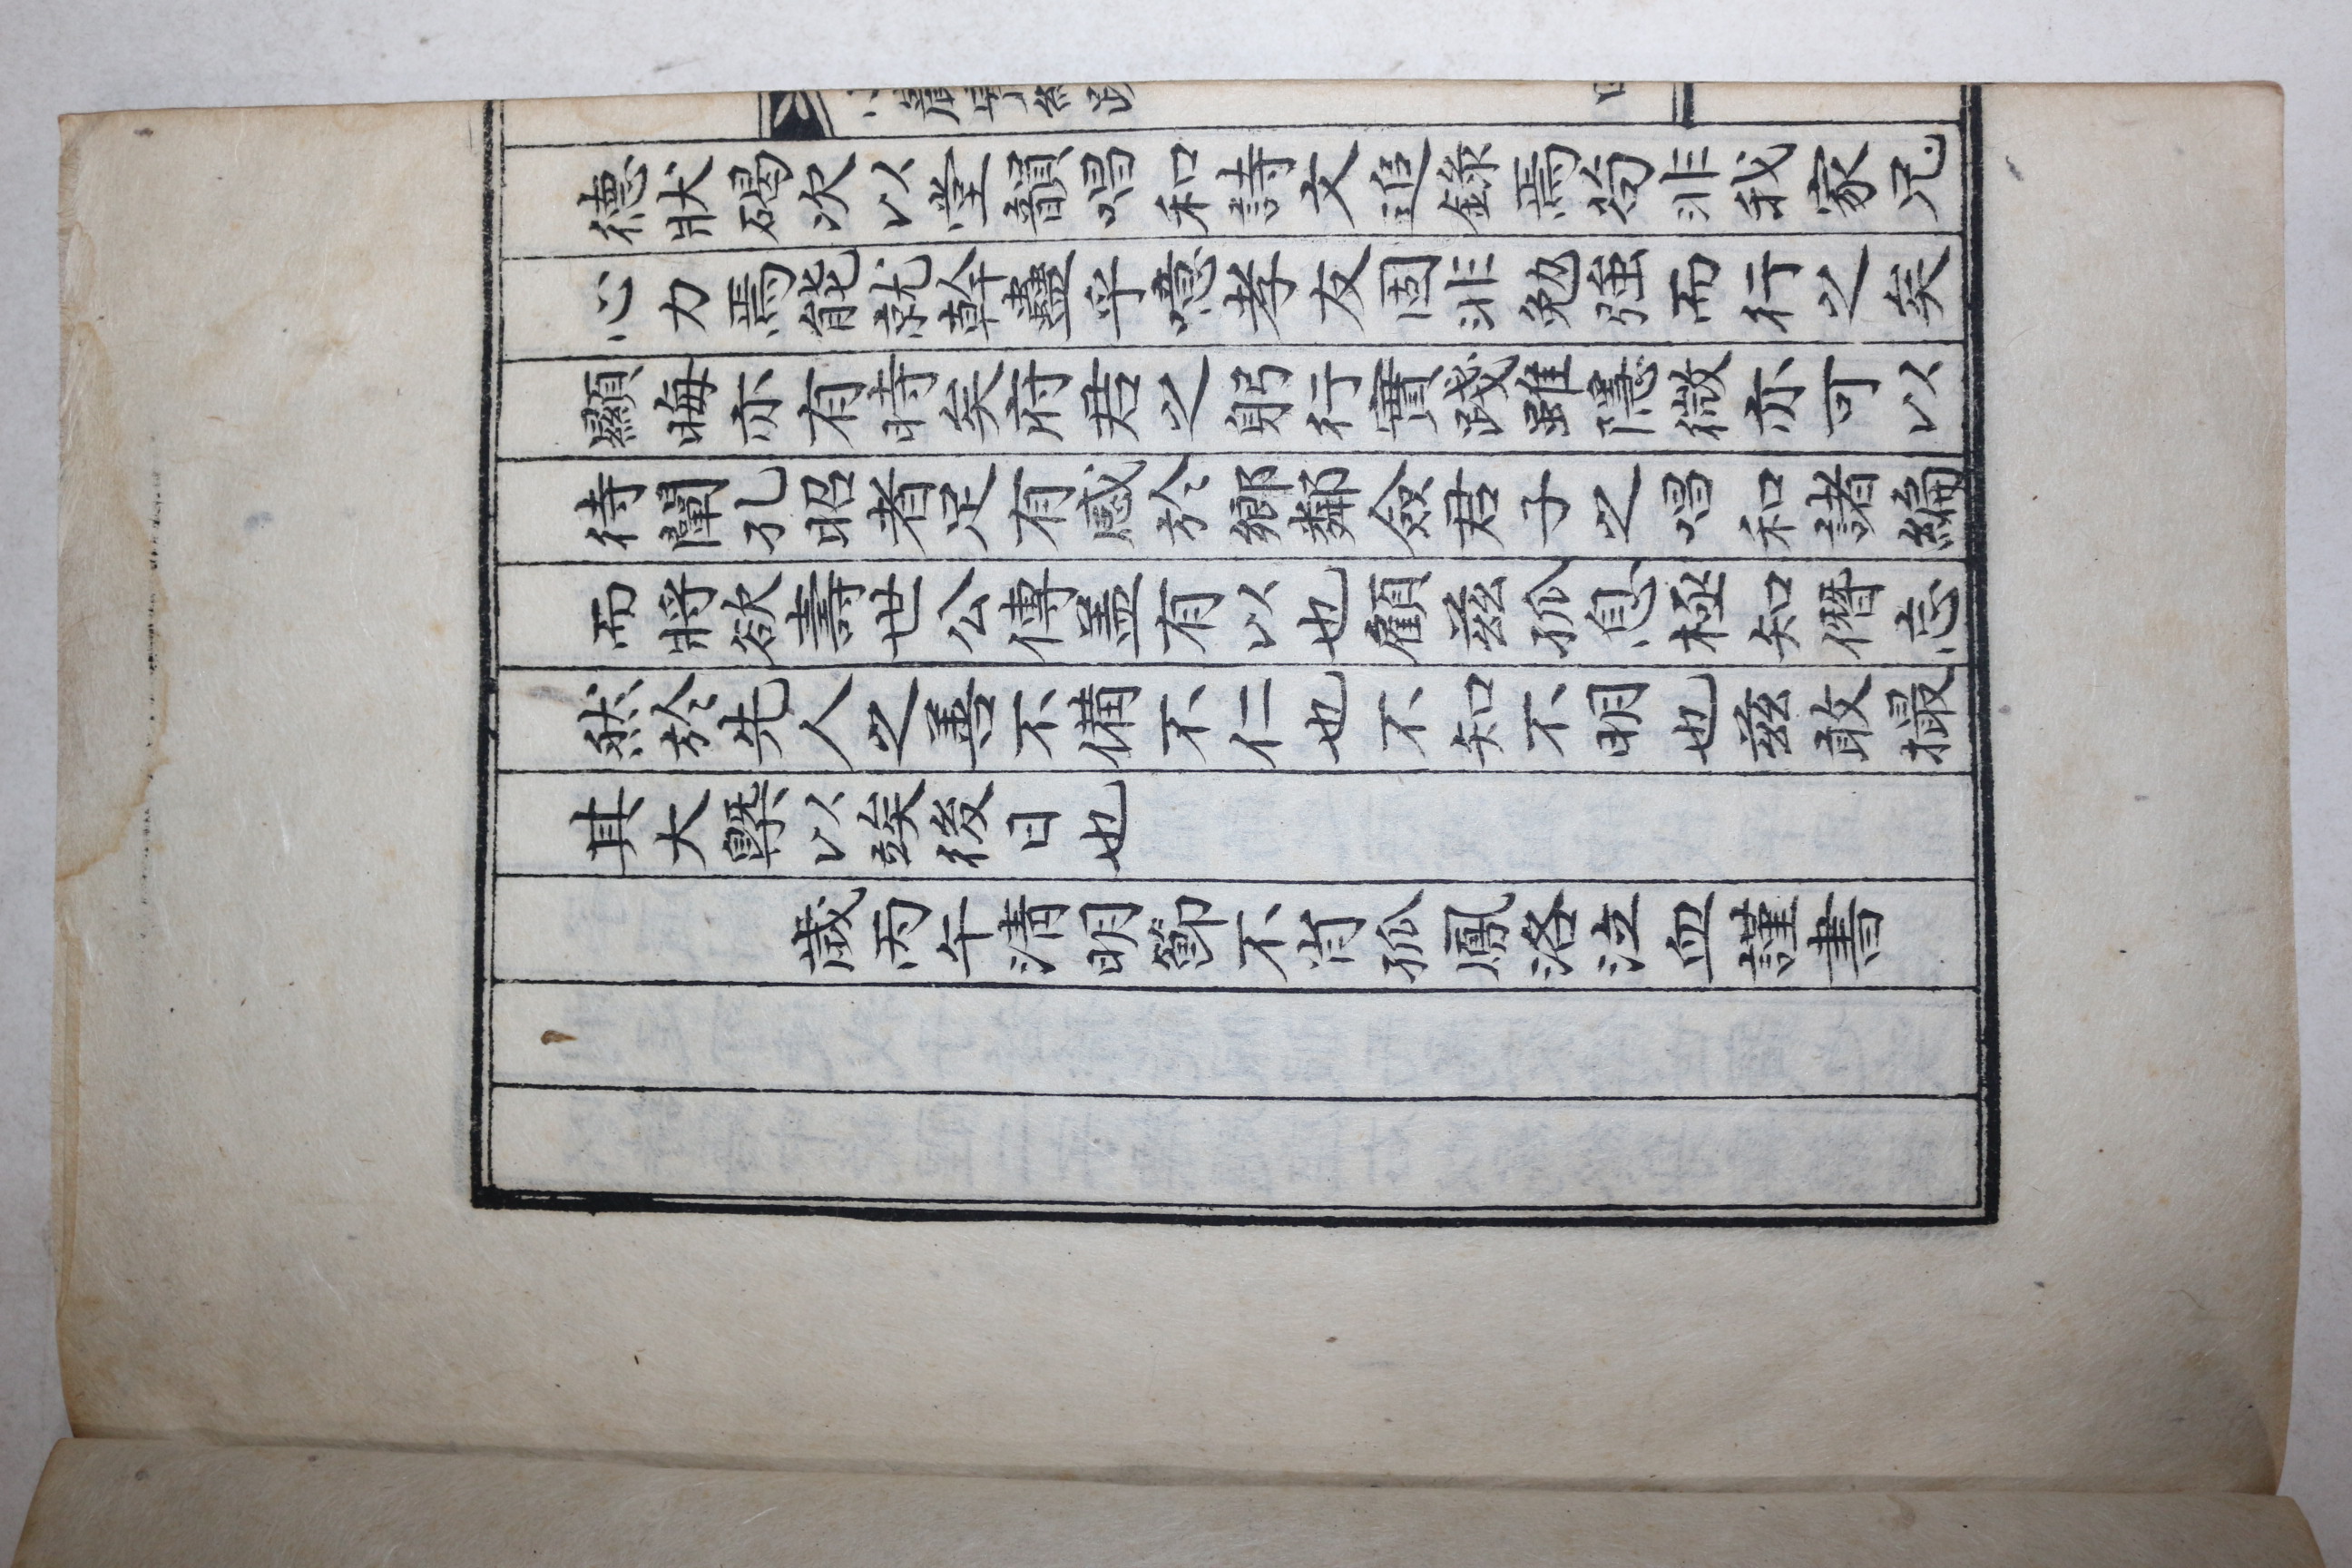 德狀碣次以堂韻唱和詩文追錄焉苟非我家兄
心力焉能就幹蠱乎噫孝友固非勉强而行之矣
顯晦亦有時矣府君之躬行實踐雖隱微亦可以
待闡孔昭者足有感於鄕鄰僉君子之唱和諸編
而將欲壽世公傳盖有以也顧玆孤息極知僭忘
然於先人之善不備不仁也不知不明也玆敢撮
其大槩以竢後日也
歲丙午淸明節不肖孤鳳洛泣血謹書